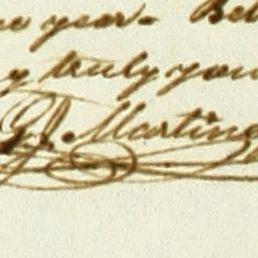 year. Bel
y truly you
G. J. Martine